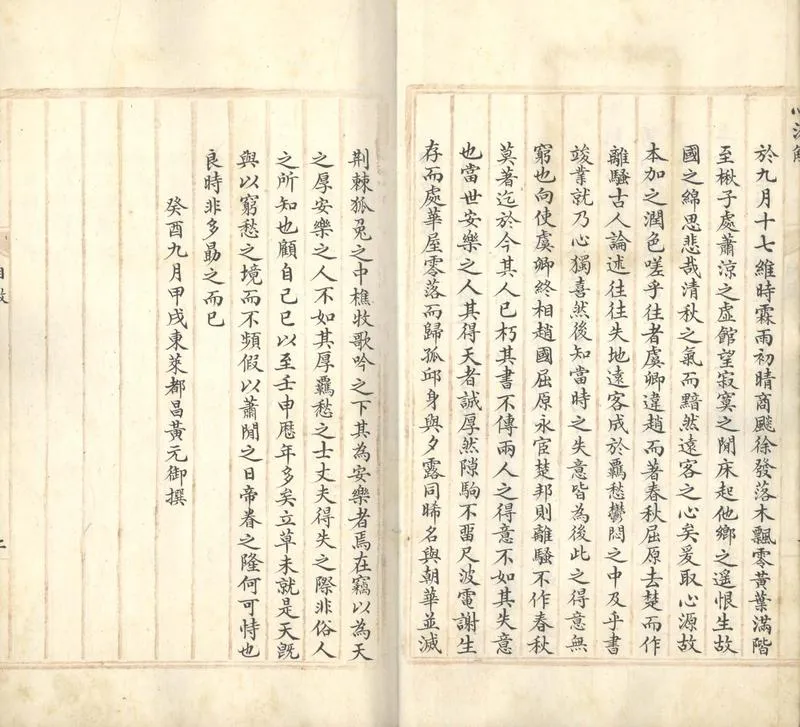 於九月十七維時霖雨初晴商飈徐發落木飄零黃葉滿階
至楸子處蕭涼之虛館望寂寞之閒床起他鄉之遥恨生故
國之綿思悲哉清秋之氣而黯然遠客之心矣爰取心源故
本加之潤色嗟乎往者虞卿違趙而著春秋屈原去楚而作
離騷古人論述往往失地遠客成於羈愁鬱悶之中及乎書
竣業就乃心獨喜然後知當時之失意皆為後此之得意無
窮也向使虞卿終相趙國屈原永宦楚邦則離騷不作春秋
莫著迄於今其人已朽其書不傳兩人之得意不如其失意
也當世安樂之人其得天者誠厚然隙駒不畱尺波電謝生
存而處華屋零落而歸孤邱身與夕露同晞名與朝華並滅
荆棘狐兔之中樵牧歌吟之下其為安樂者焉在竊以為天
之厚安樂之人不如其厚羈愁之士丈夫得失之際非俗人
之所知也顧自己巳以至壬申歴年多矣立草未就是天旣
與以窮愁之境而不頻假以蕭閒之日帝眷之隆何可恃也
良時非多勗之而已
癸酉九月甲戌東萊都昌黃元御撰